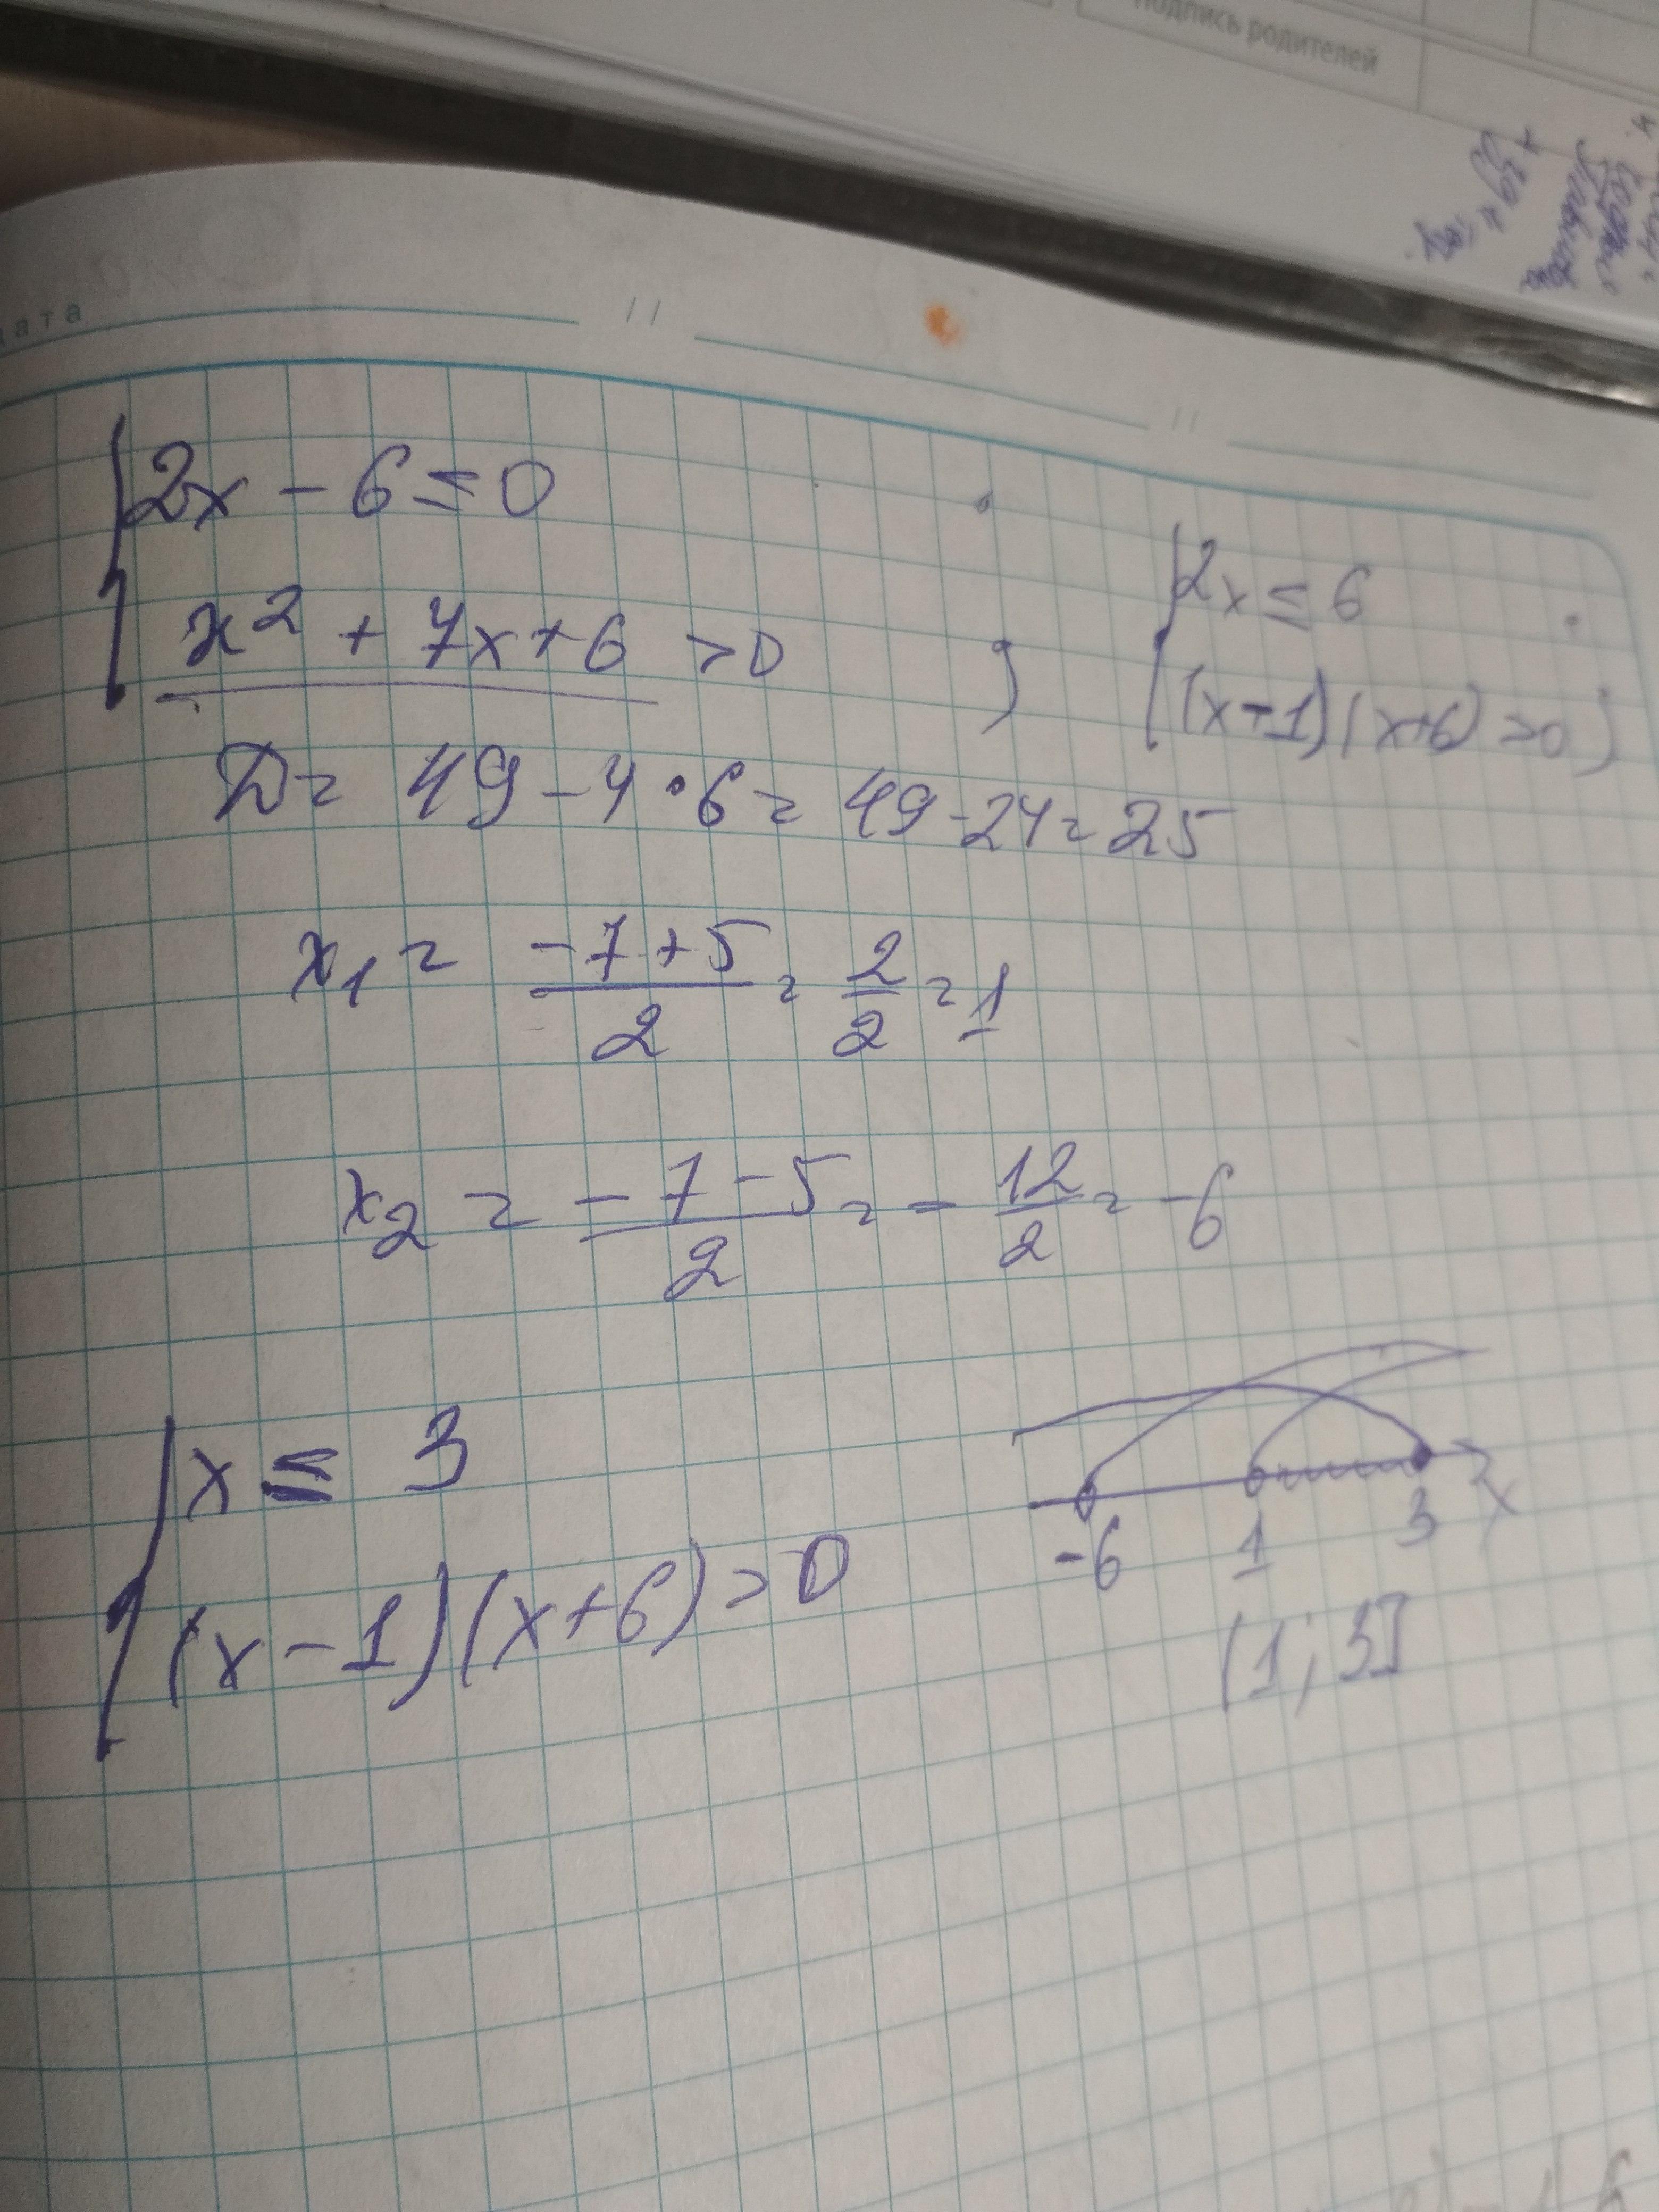 подпись родителей
дата
2x - 6 ≤ 0
x² + 7x + 6 > 0 ;
2x ≤ 6
(x - 1)(x+6) > 0 ;
D = 49 - 4 · 6 = 49 - 24 = 25
x₁ = (-7 + 5)/2 = 2/2 = 1
x₂ = (-7 - 5)/2 = - 12/2 = -6
x ≤ 3
(x - 1)(x + 6) > 0
-6 1 3 x
(1 ; 3]